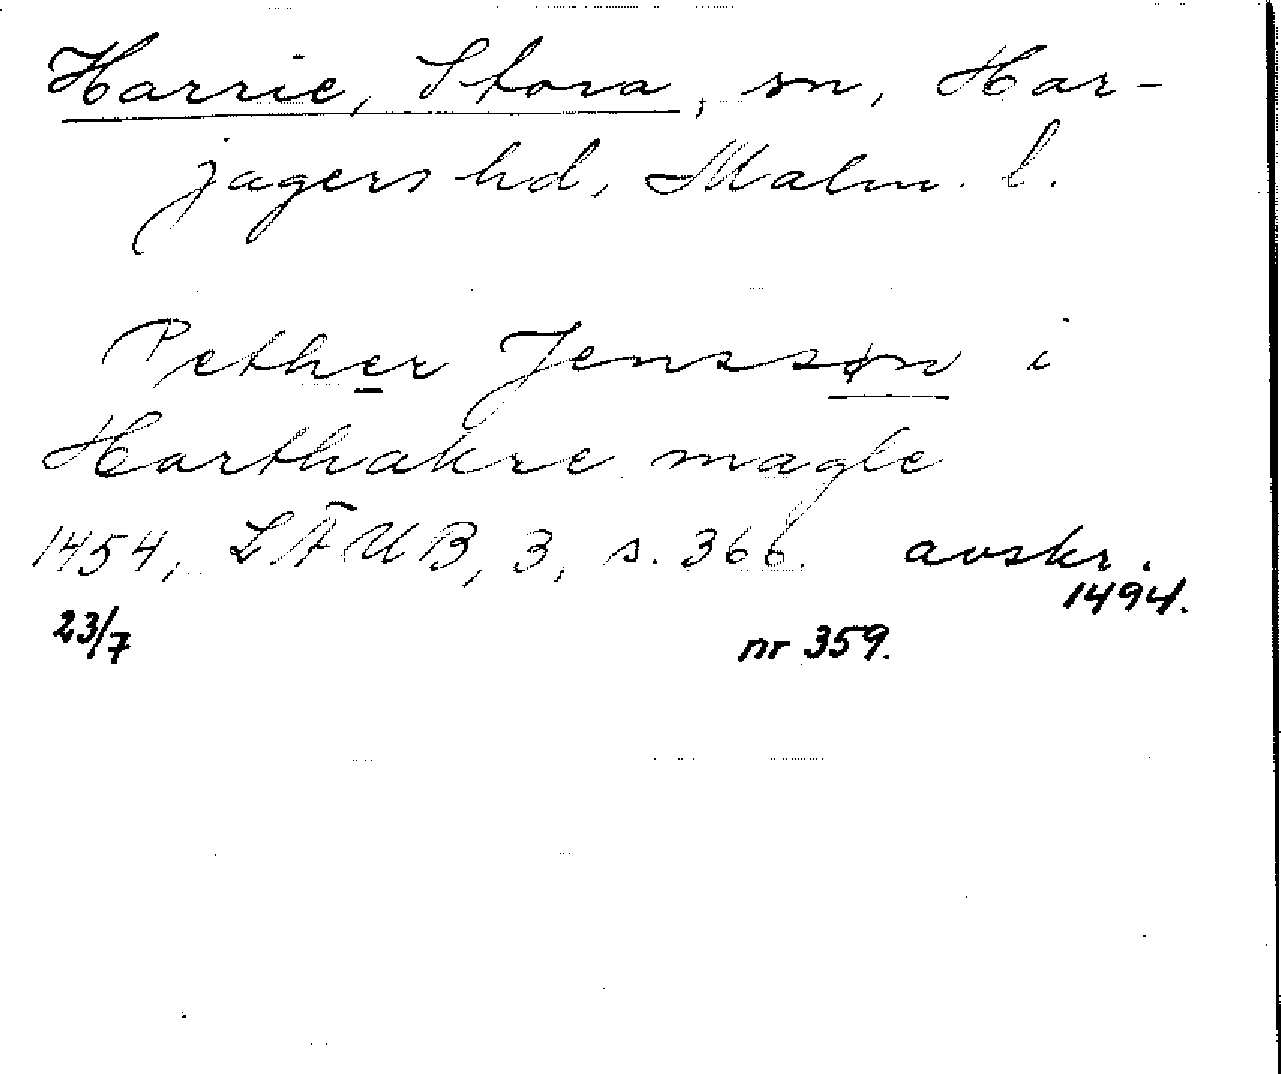 Harrie, Stora, sn, Har-
jagers hd, Malm. l.
Pether Jenssøn i
Harthakre magle
1454, LÄUB, 3, s. 366. avskr.
1494.
23/7 nr 359.